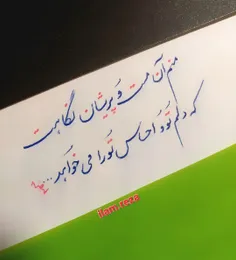 منم آن مست و پریشان نگاهت
که دلم تو و احساس تو را می خواهد...